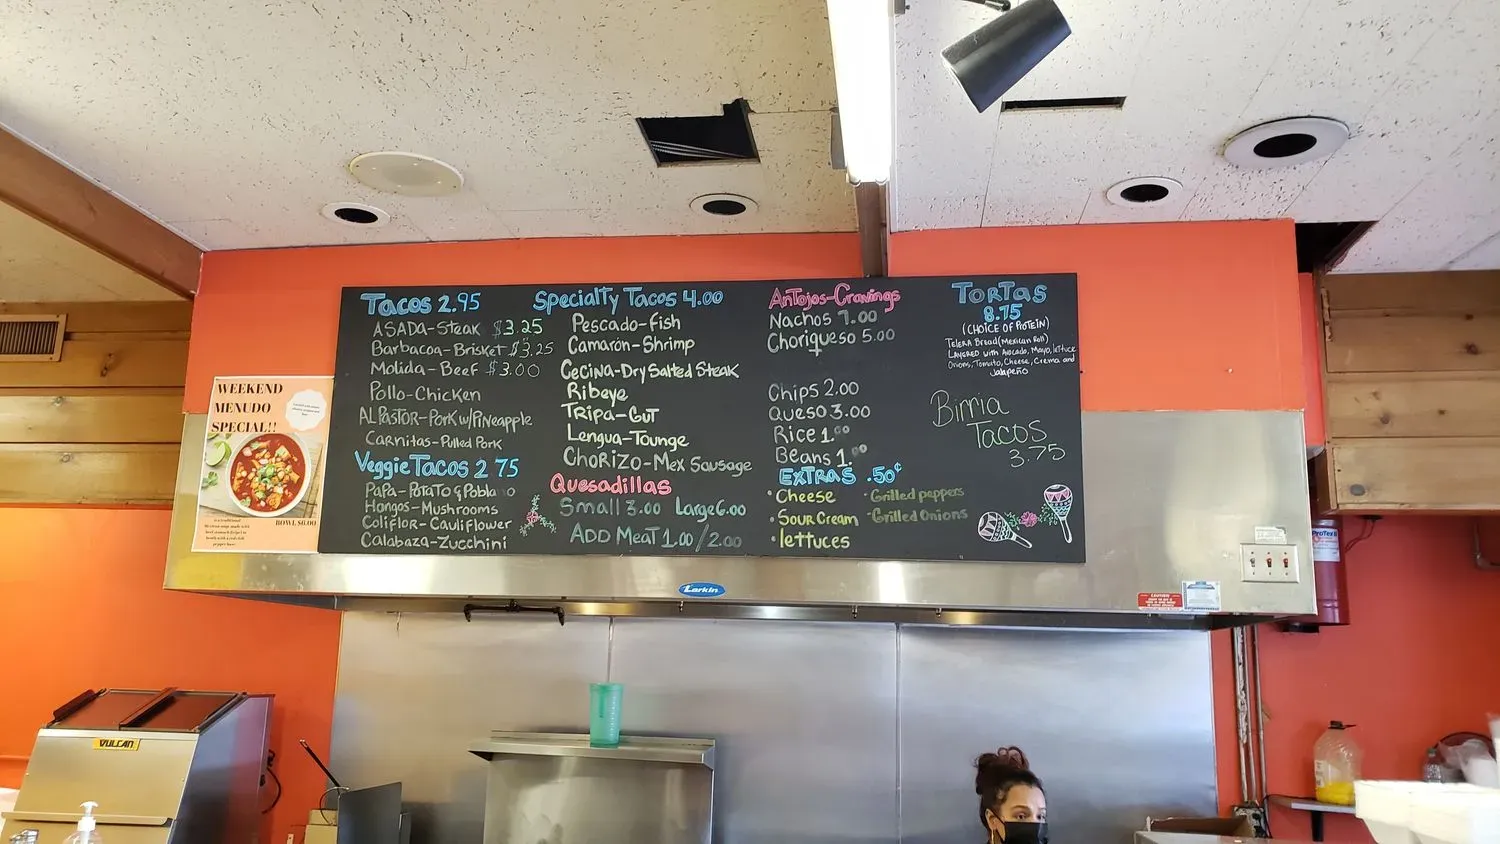 WEEKEND
MENUDO
SPECIAL!!
BOWL $6.00
Tacos 2.95
ASADA-Steak $3.25
Barbacoa-Brisket $3.25
Molida-Beef $3.00
Pollo-Chicken
AL PASTOR-Pork w/Pineapple
Carnitas-Pulled Pork
Veggie Tacos 2 75
Papa-Potato & Poblano
Hongos-Mushrooms
Coliflor-Cauliflower
Calabaza-Zucchini
Specialty Tacos 4.00
Pescado-Fish
Camarón-Shrimp
Cecina-Dry Salted Steak
Ribeye
Tripa-Gut
Lengua-Tounge
Chorizo-Mex Sausage
Quesadillas
Small 3.00 Large 6.00
ADD MeaT 1.00/2.00
Antojos-Cravings
Nachos 7.00
Choriqueso 5.00
Chips 2.00
Queso 3.00
Rice 1.00
Beans 1.00
EXTRAS .50¢
Cheese
Sour Cream
lettuces
Grilled peppers
Grilled Onions
TORTAS
8.75
(CHOICE OF PROTEIN)
Telera Bread (Mexican Roll)
Layered with Avocado, Mayo, lettuce
Onions, Tomato, Cheese, Crema and
Jalapeño
Birria
Tacos
3.75
Larkin
VULCAN
CAUTION
ProTex II